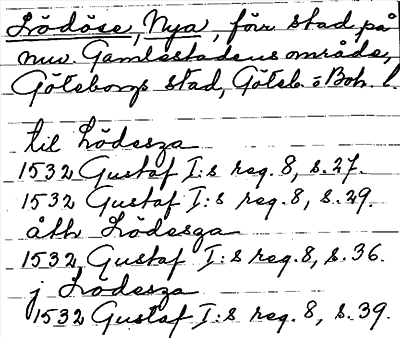 Lödöse, Nya, förr stad på
nuv. Gamlestadens område,
Göteborgs stad, Göteb. o Boh. l.
til Lödesza
1532 Gustaf I:s reg. 8, s. 27.
1532 Gustaf I:s reg. 8, s. 29.
åth Lödesza
1532 Gustaf I:s reg. 8, s. 36.
j Lödesza
1532 Gustaf I:s reg. 8, s. 39.